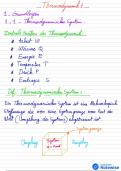 Thermodynamik 1
1. Grundlagen
1.1 - Thermodynamische System
Zentrale Größen der Thermodynamik:
Arbeit W
Wärme Q
Energie E
Temperatur T
Druck P
Entropie S
Def. Thermodynamisches System:
Ein Thermodynamisches System ist ein
die von eine Systemgrenze vom Rest der
Welt (Umgebung des Systems) abgetrennt ist.
Systemgrenze
Umgebung
System
Umgebung